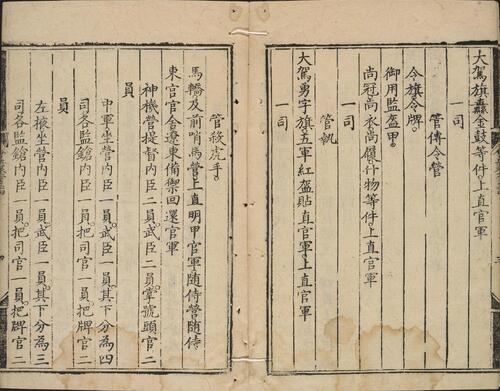 大駕旗纛金鼓等件上直官軍
一司
管傳令營
令旗令牌
御用監盔甲
尚冠尚衣尚履什物等件上直官軍
一司
管執
大駕勇字旗五軍紅盔貼直官軍上直官軍
一司
管殺虎手
馬轎及前哨馬營上直明甲官軍隨侍營隨侍
東宮官舍遼東備禦回還官軍
神機營提督內臣二員武臣二員掌號頭官二
員
中軍坐營內臣一員武臣一員其下分為四
司各監鎗內臣一員把司官一員把牌官二
員
左掖坐營內臣一員武臣一員其下分為三
司各監鎗內臣一員把司官一員把牌官二